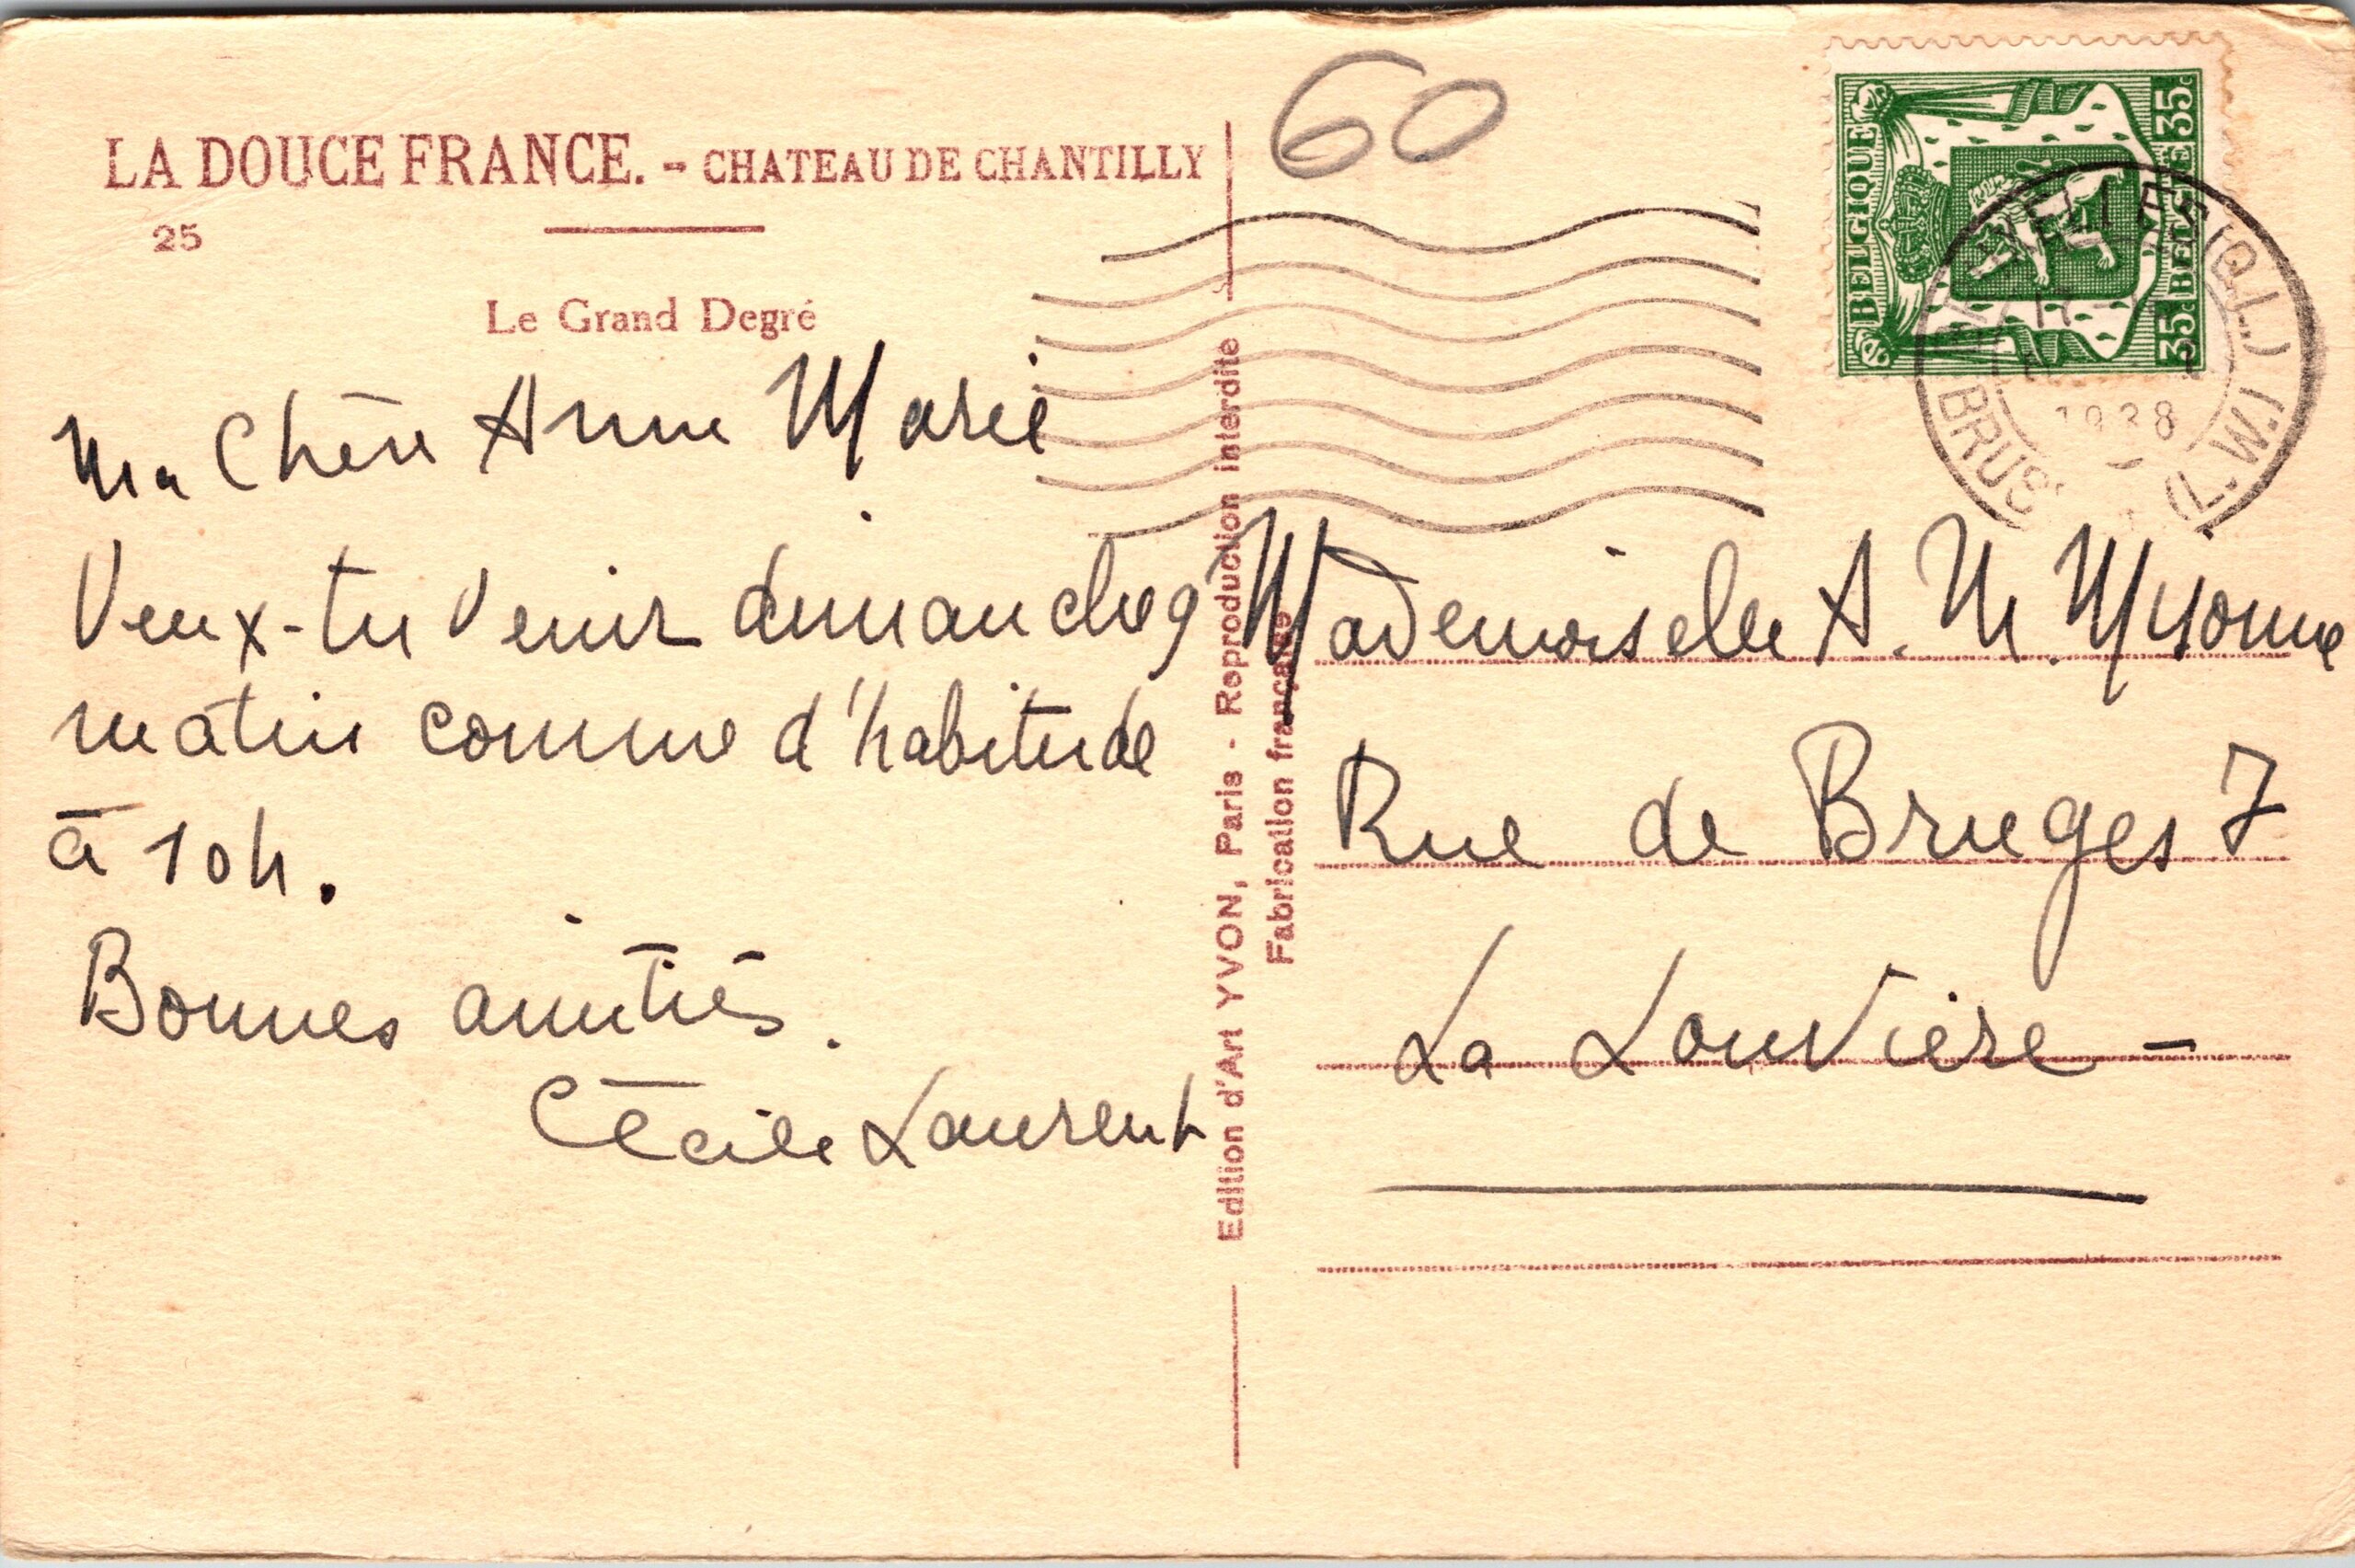 LA DOUCE FRANCE. - CHATEAU DE CHANTILLY
25
Le Grand Degré
60
BELGIQUE
35c BELGIE 35c
(Q.L.)
1938
(L.W.)
Ma Chère Anne Marie
Veux-tu venir dimanche 9
matin comme d'habitude
à 10h.
Bonnes amitiés.
Cécile Laurent
Edition d'Art YVON, Paris - Reproduction interdite
Fabrication française
Mademoiselle A. M.
Rue de Bruges 7
La Louvière -